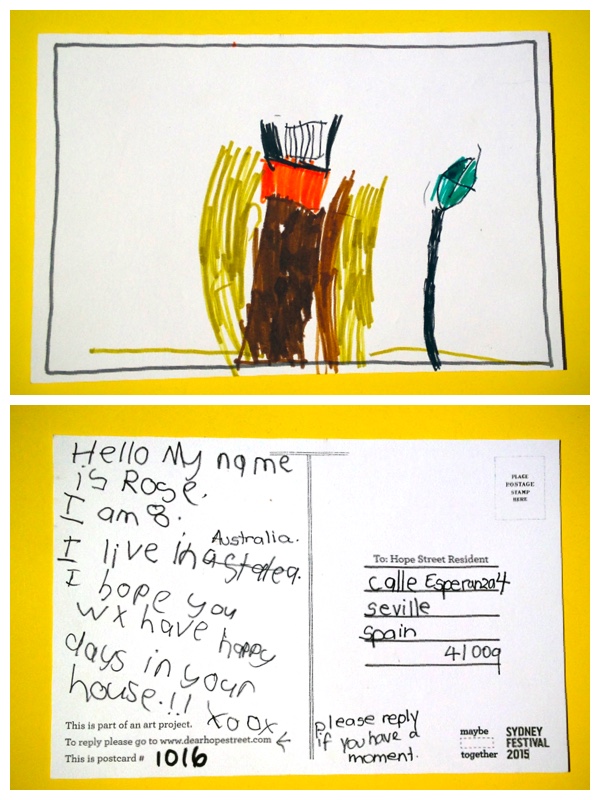 Hello My name
is Rose.
I am 8.
Australia.
I live in
I hope you
have happy
days in your
house.!!
xoox
This is part of an art project.
To reply please go to www.dearhopestreet.com
This is postcard # 1016
PLACE
POSTAGE
STAMP
HERE
To: Hope Street Resident
calle Esperanza 4
seville
spain
41009
please reply
if you have a
moment.
maybe
together
SYDNEY
FESTIVAL
2015